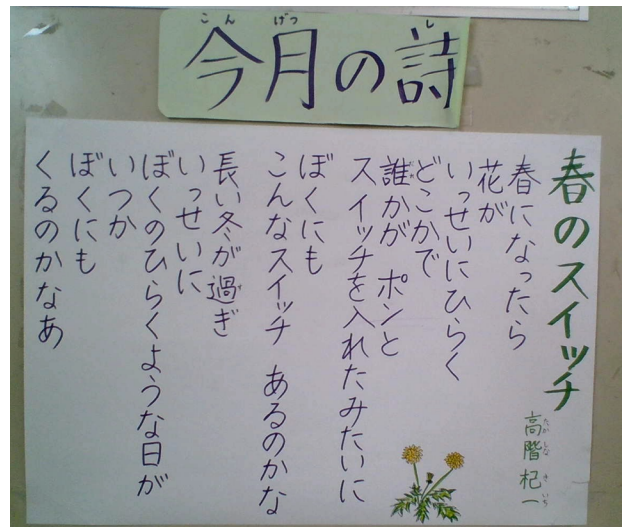 今月の詩
春のスイッチ
高階杞一
春になったら
花が
いっせいにひらく
どこかで
誰かが ポンと
スイッチを入れたみたいに
ぼくにも
こんなスイッチ あるのかな
長い冬が過ぎ
いっせいに
ぼくのひらくような日が
いつか
ぼくにも
くるのかなあ